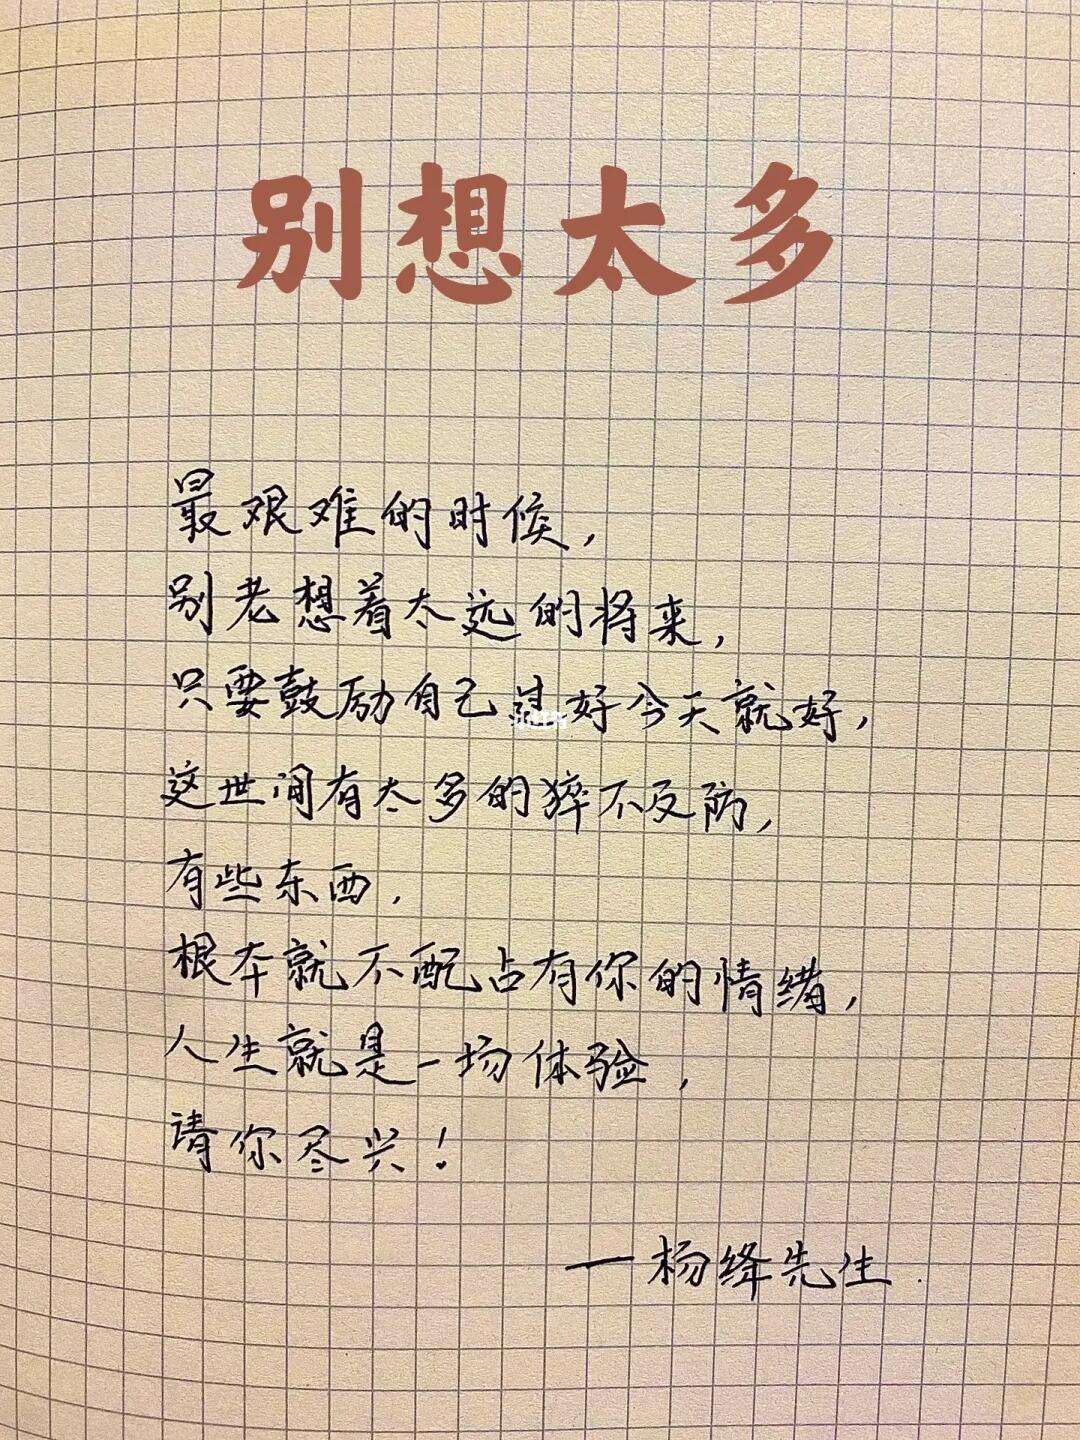 别想太多
最艰难的时候,
别老想着太远的将来,
只要鼓励自己过好今天就好,
这世间有太多的猝不及防,
有些东西.
根本就不配占有你的情绪,
人生就是一场体验,
请你尽兴!
—杨绛先生.